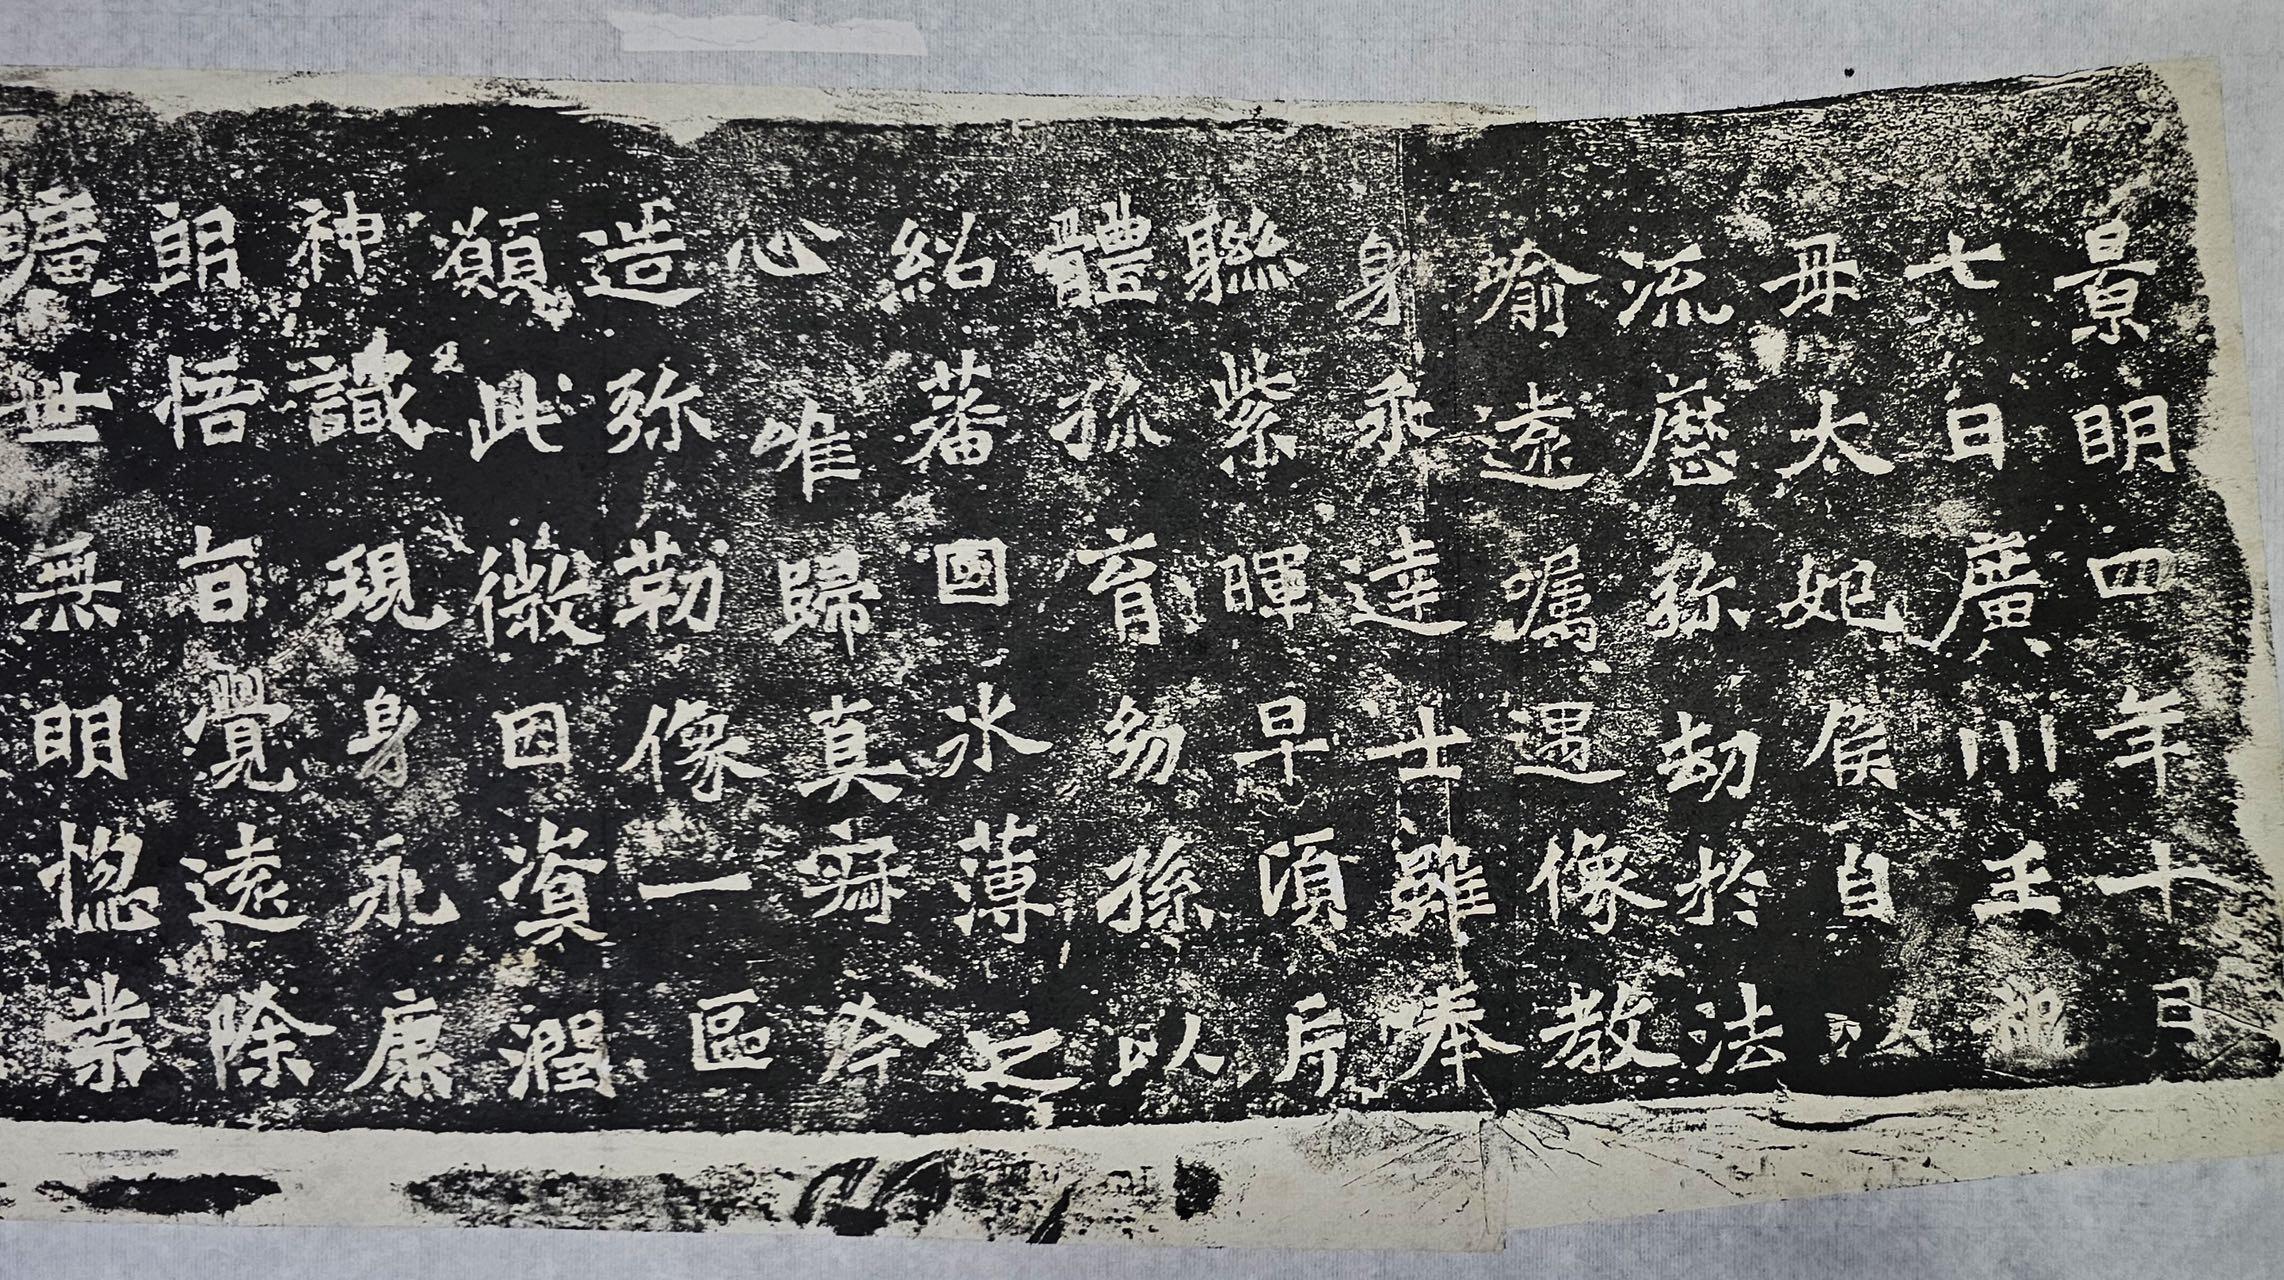 景明四年十月
七日廣川王祖
母太妃侯自以
流歷弥劫於法
喻遠嘱遇像教
身乖達士雖奉
聯紫暉早頃片
體孤育幼孫以
紹蕃國冰薄之
心唯歸真寂今
造弥勒像一區
願此微因資潤
神識現身永康
朗悟旨覺遠除
曠世無明惚業